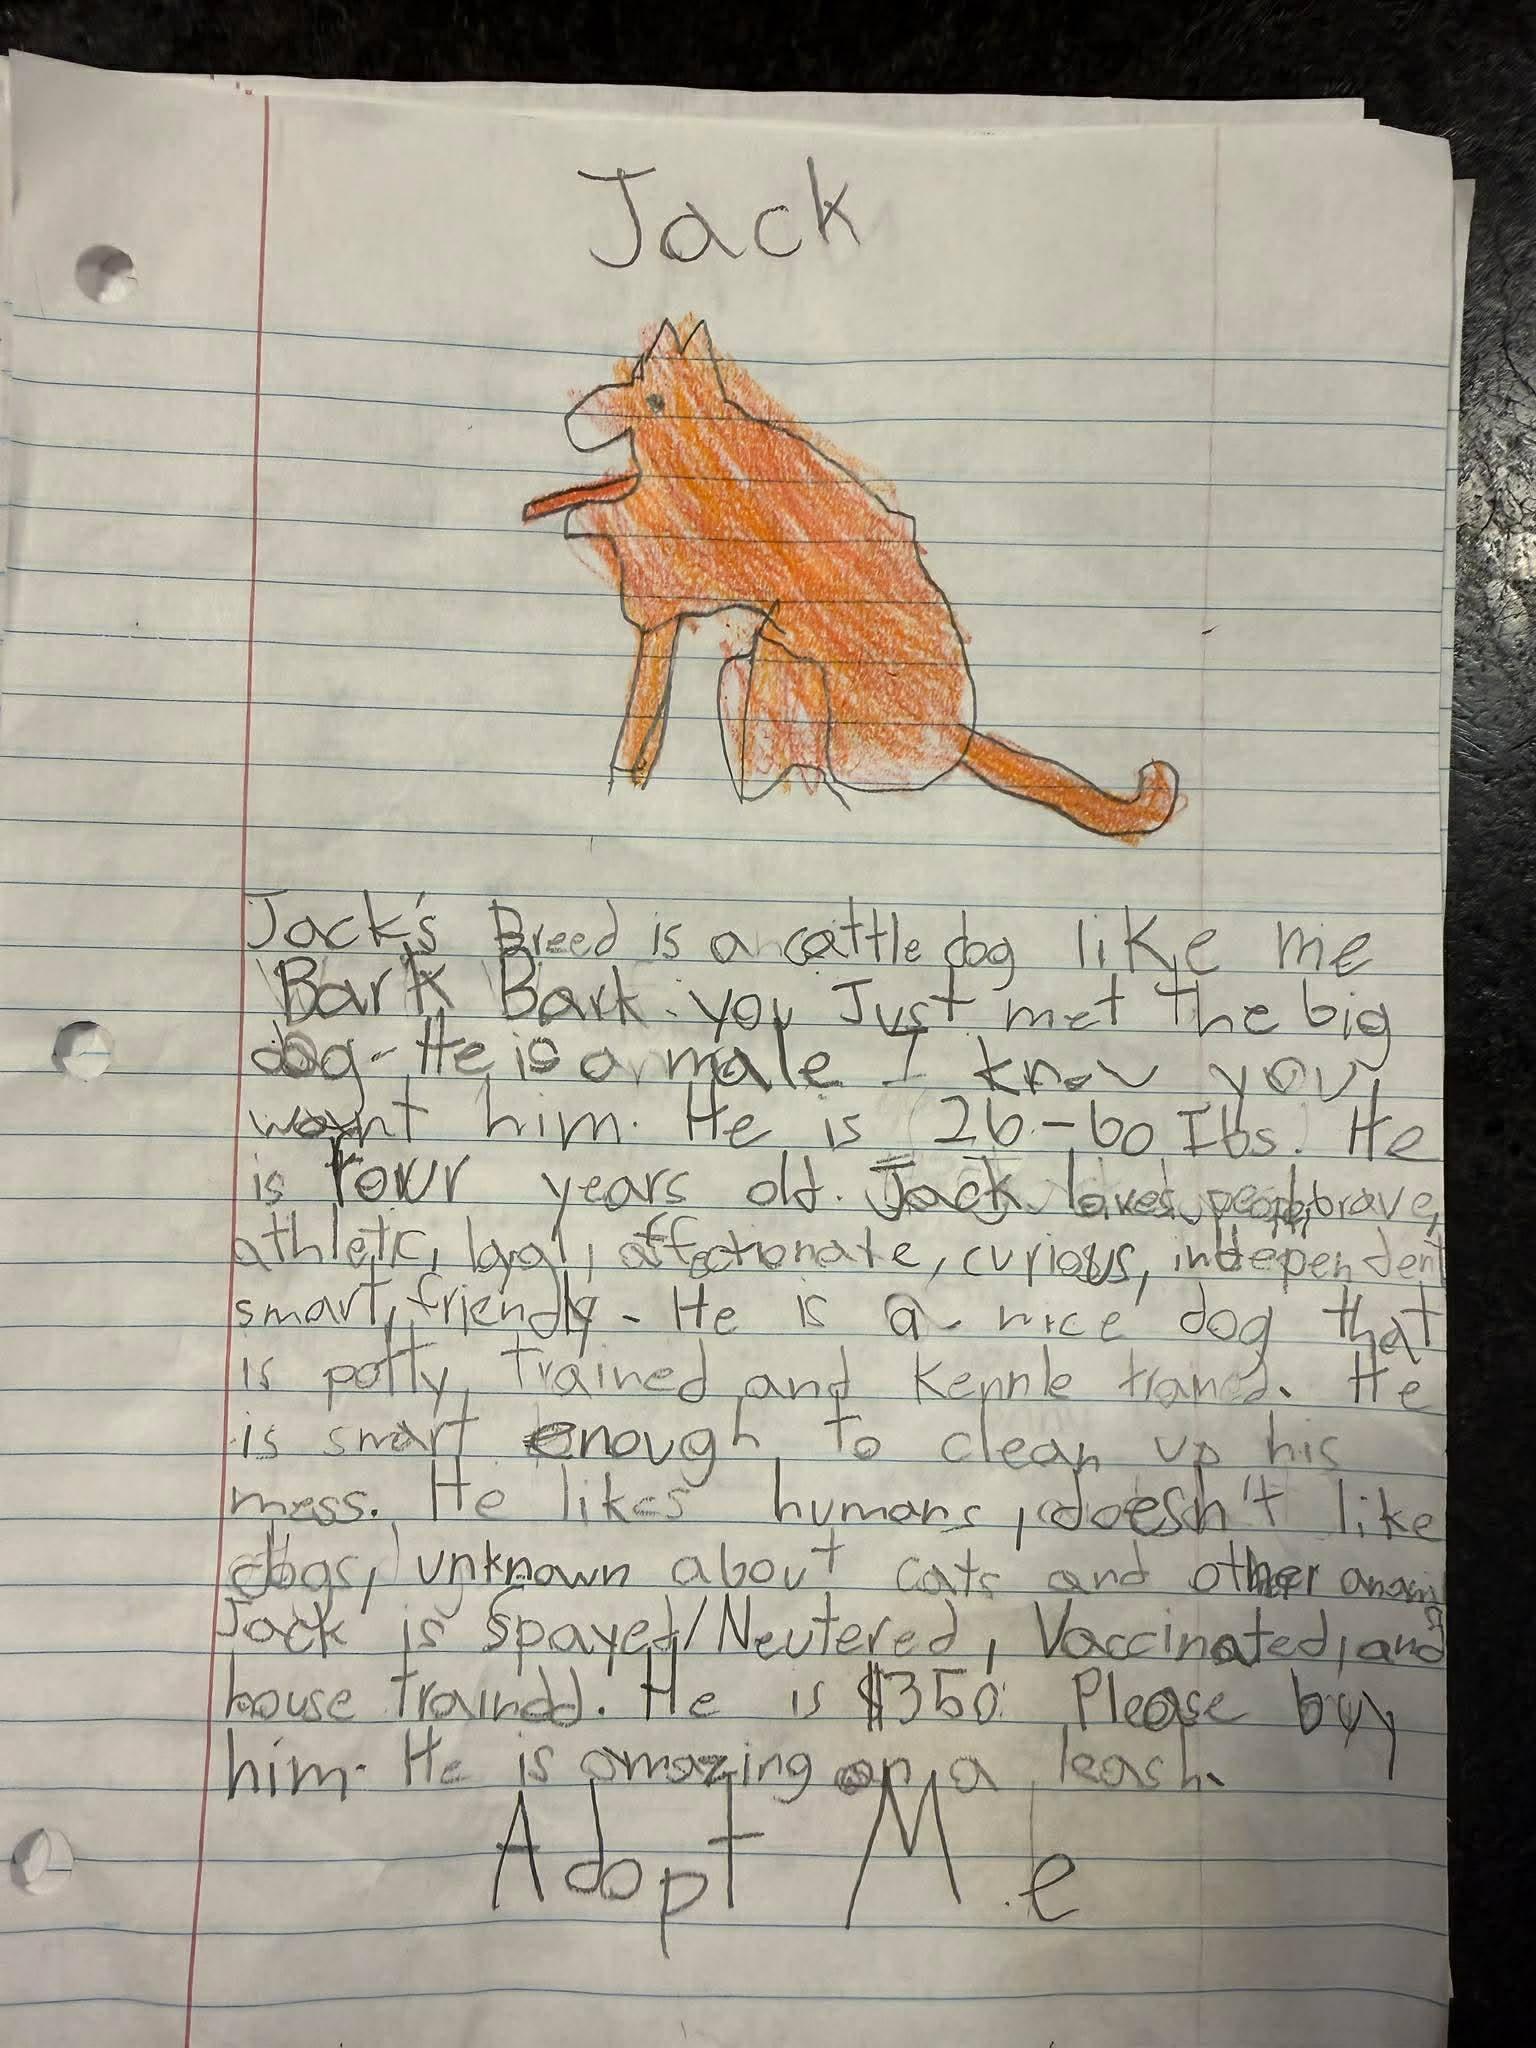 Jack
Jack's Breed is a cattle dog like me
Bark Bark. you Just met the big
dog. He is a male I know you
want him. He is 26-60 Ibs. He
is four years old. Jack loves people, brave,
athletic, loyal, affectionate, curious, independent
smart, friendly. He is a nice dog that
is potty trained and kennle trained. He
is smart enough to clean up his
mess. He likes humans, doesn't like
dogs, unknown about cats and other anamis
Jack is Spayed/Neutered, Vaccinated, and
house traindd. He is $350. Please buy
him. He is amazing on a leash.
Adopt Me